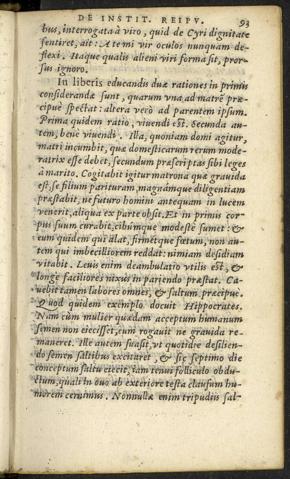 DE INSTIT. REIPV. 93
bus, interrogata à viro, quid de Cyri dignitate
sentiret, ait: A te mi vir oculos nunquam de-
flexi. Itaque qualis alieni viri forma sit, pror-
sus ignoro.
In liberis educandis duæ rationes in primis
considerandæ sunt, quarum vna ad matrē præ-
cipuè spectat: altera verò ad parentem ipsum.
Prima quidem ratio, viuendi est. Secunda au-
tem, benè viuendi. Illa, quoniam domi agitur,
matri incumbit, quæ domesticarum rerum mode-
ratrix esse debet, secundum præscriptas sibi leges
à marito. Cogitabit igitur matrona quæ grauida
est, se filium parituram, magnámque diligentiam
præstabit, ne futuro homini antequam in lucem
venerit, aliqua ex parte obsit. Et in primis cor-
pus suum curabit, cibumque modestè sumet: &
eum quidem qui alat, firmétque fœtum, non au-
tem qui imbecilliorem reddat: nimiam desidiam
vitabit. Leuis enim deambulatio vtilis est, &
longè faciliores nixus in pariendo præstat. Ca-
uebit tamen labores omnes, & saltum præcipuè.
Quod quidem exemplo docuit Hippocrates.
Nam cùm mulier quædam acceptum humanum
semen non eiecisset, eum rogauit ne grauida re-
maneret. Ille autem suasit, vt quotidie desilien-
do semen saltibus excitaret, & sic septimo die
conceptum saltu eiecit, iam tenui folliculo obdu-
ctum, quali in ouo ab exteriore testa clausum hu-
morem cernimus. Nonnullæ enim tripudiis sal-